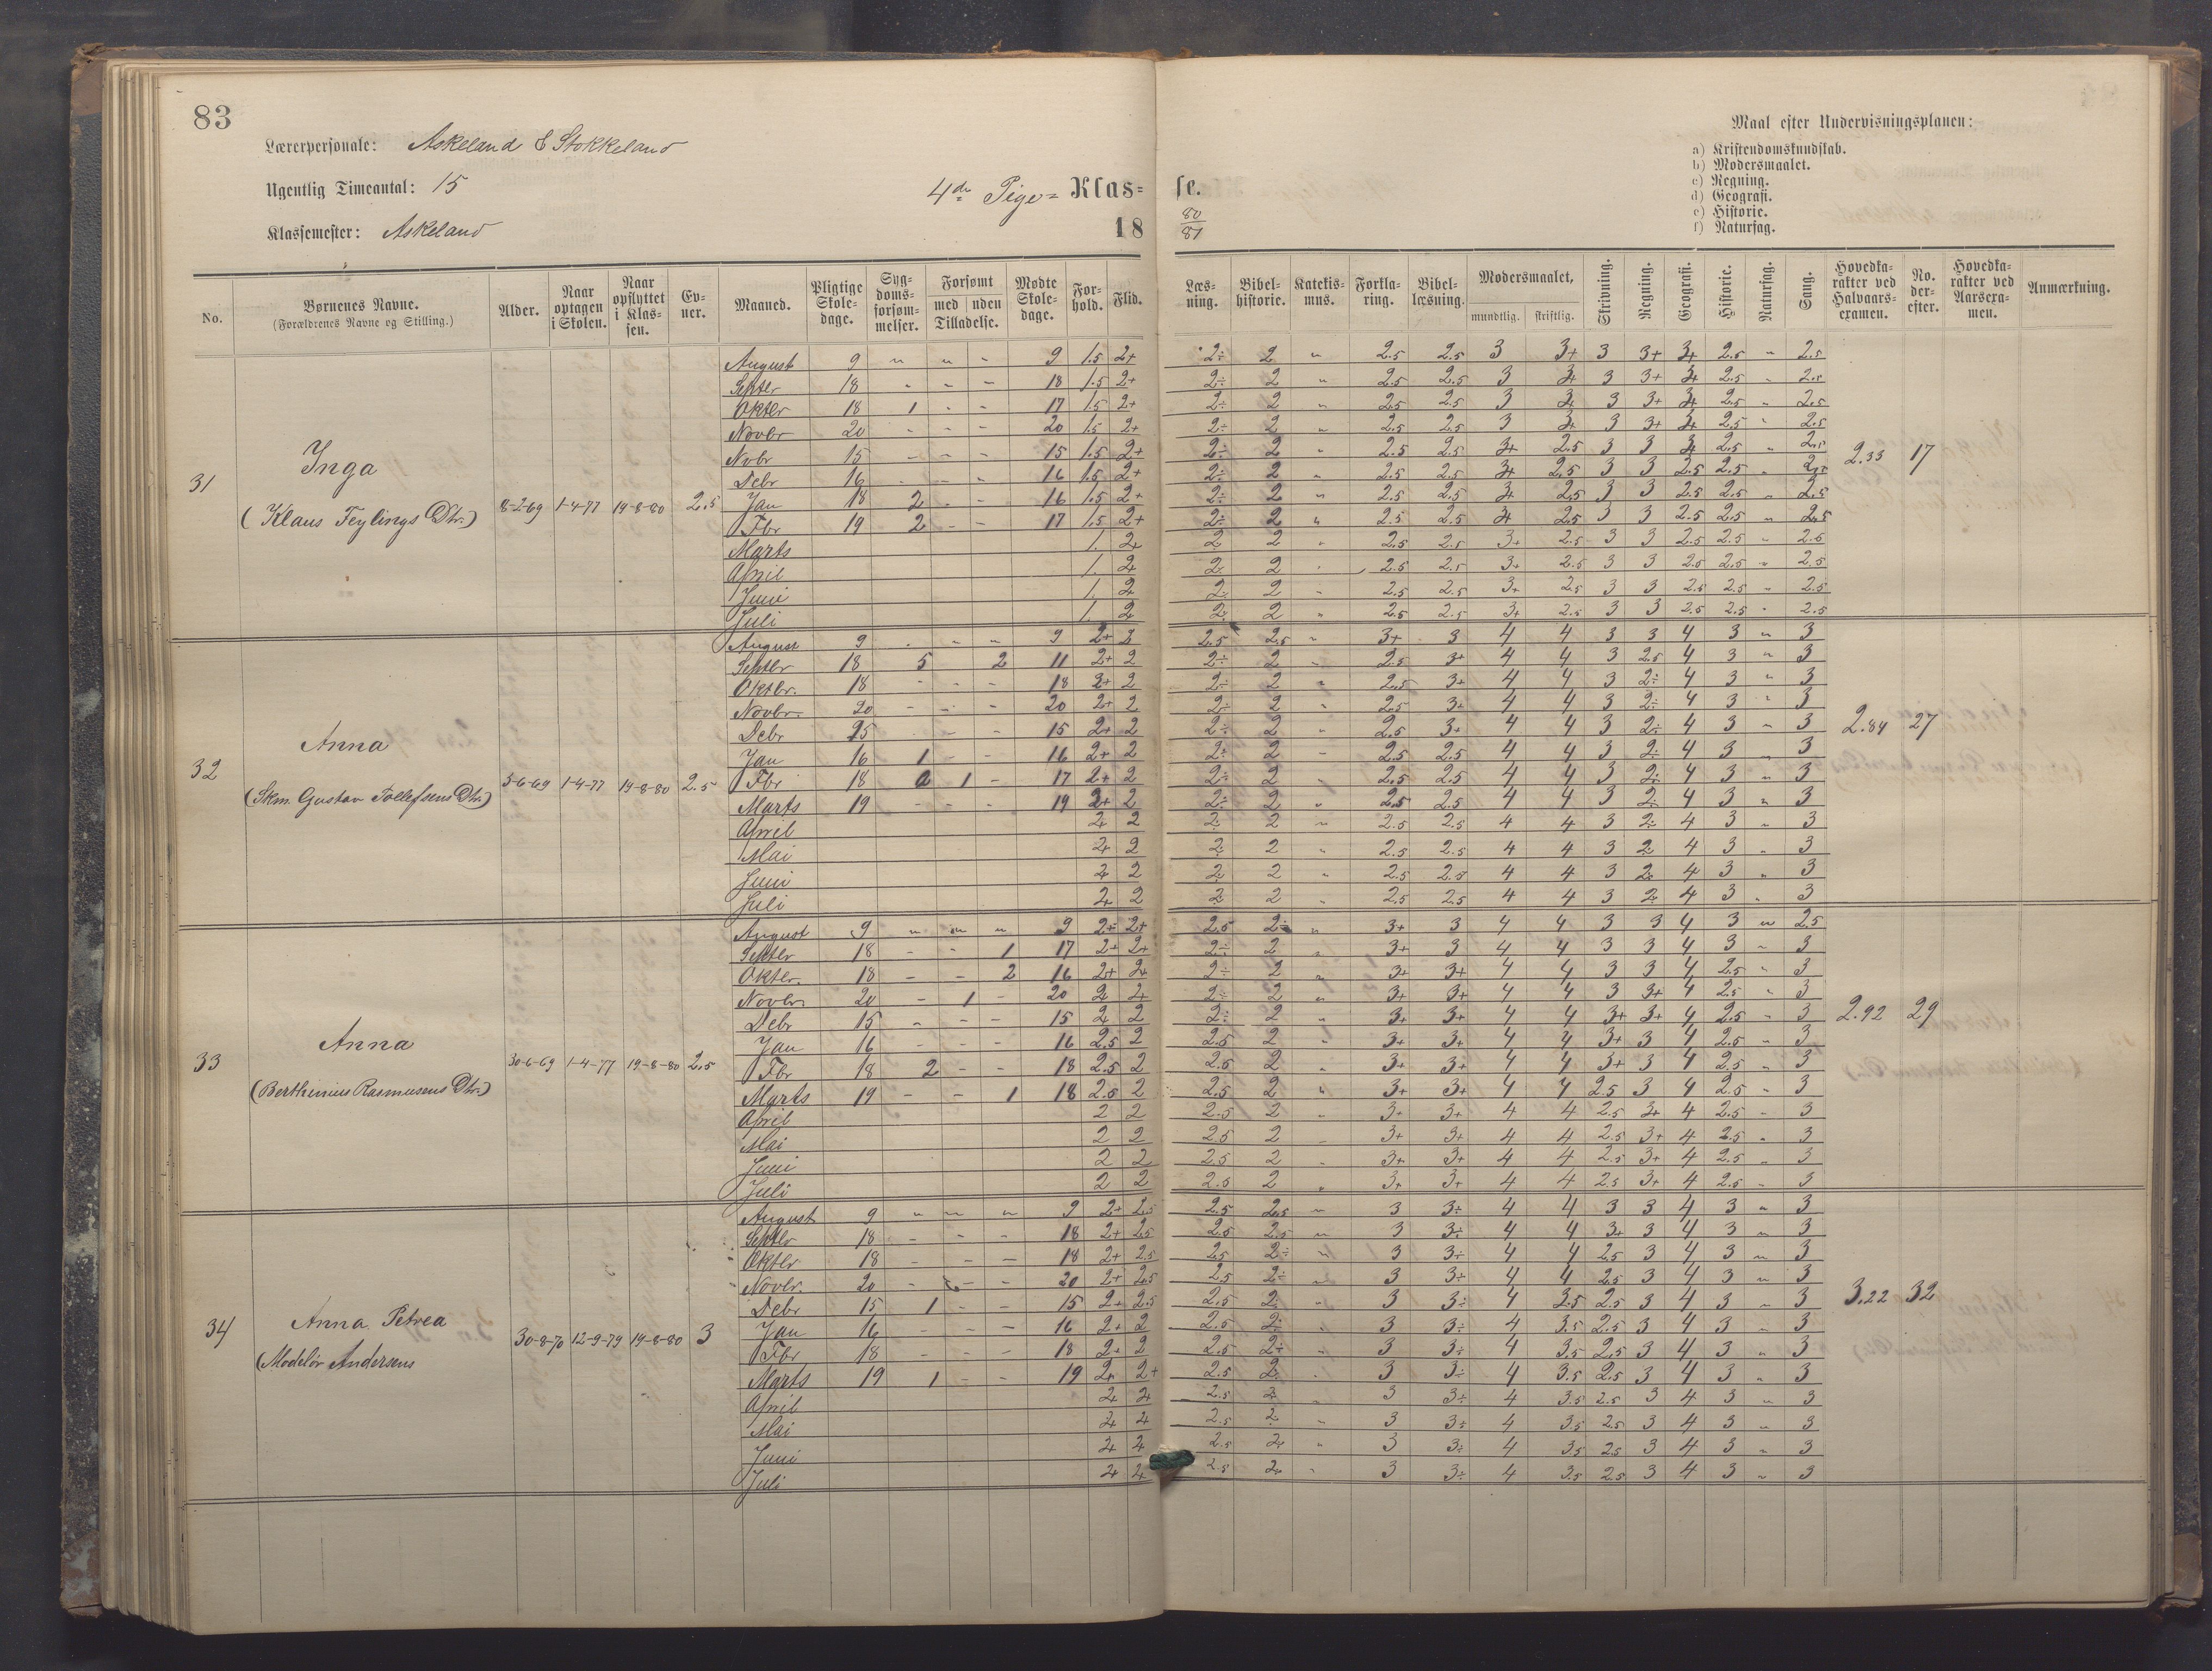 83
Lærerpersonale: Askeland & Stokkeland
Ugentlig Timeantal: 15
Klassemester: Askeland
4de Pige= Klas= se.
18 80/81
Maal efter Undervisningsplanen:
a) Kristendomskundskab.
b) Modersmaalet.
c) Regning.
d) Geografi.
e) Historie.
f) Naturfag.
No. Børnenes Navne. (Forældrenes Navne og Stilling.) Alder. Naar optagen i Skolen. Naar opflyttet i Klassen. Evner. Maaned. Pligtige Skoledage. Sygdomsforsømmelser. Forsømt med uden Tilladelse. Mødte Skoledage. Forhold. Flid. Læsning. Bibelhistorie. Katekismus. Forklaring. Bibellæsning. Modersmaalet, mundtlig. skriftlig. Skrivning. Regning. Geografi. Historie. Naturfag. Sang. Hovedkarakter ved Halvaarsexamen. No. derefter. Hovedkarakter ved Aarsexamen. Anmærkning.
31 Inga (Klaus Feylings Dtr.) 8-2-69 1-4-77 19-8-80 2.5 2.33 17
August 9 " " " 9 1.5 2+ 2÷ 2 " 2.5 2.5 3 3+ 3 3+ 3+ 2.5 " 2.5
Septbr 18 - - - 18 1.5 2+ 2÷ 2 " 2.5 2.5 3 3+ 3 3+ 3+ 2.5 " 2.5
Oktbr 18 1 - - 17 1.5 2+ 2÷ 2 " 2.5 2.5 3 3+ 3 3+ 3+ 2.5 " 2.5
Novbr 20 - - - 20 1.5 2+ 2÷ 2 " 2.5 2.5 3 3+ 3 3+ 3+ 2.5 " 2.5
Nvbr 15 - - - 15 1.5 2+ 2÷ 2 " 2.5 2.5 3+ 2.5 3 3 3+ 2.5 " 2.5
Debr 16 - - - 16 1.5 2+ 2÷ 2 " 2.5 2.5 3+ 2.5 3 3 2.5 2.5 " 2.5
Jan 18 2 - - 16 1.5 2+ 2÷ 2 " 2.5 2.5 3+ 2.5 3 3 2.5 2.5 " 2.5
Fbr 19 2 - - 17 1.5 2+ 2÷ 2 " 2.5 2.5 3+ 2.5 3 3 2.5 2.5 " 2.5
Marts 1. 2+ 2 2 " 2.5 2.5 3+ 2.5 3 3 2.5 2.5 " 2.5
April 1. 2+ 2 2 " 2.5 2.5 3+ 2.5 3 3 2.5 2.5 " 2.5
Juni 1. 2 2 2 " 2.5 2.5 3+ 2.5 3 3 2.5 2.5 " 2.5
Juli 1. 2 2 2 " 2.5 2.5 3+ 2.5 3 3 2.5 2.5 " 2.5
32 Anna (Skm. Gustav Tollefsens Dtr.) 5-6-69 1-4-77 19-8-80 2.5 2.84 27
August 9 - " " 9 2+ 2 2.5 2.5 " 3+ 3 4 4 3 3 4 3 " 3
Septbr 18 5 2 11 2+ 2 2÷ 2 " 2.5 3+ 4 4 3 2.5 4 3 " 3
Oktbr. 18 - - - 18 2+ 2 2÷ 2 " 2.5 3+ 4 4 3 2÷ 4 3 " 3
Novbr. 20 - - - 20 2+ 2 2÷ 2 " 2.5 3+ 4 4 3 2÷ 4 3 " 3
Debr 15 - - - 15 2+ 2 2÷ 2 " 2.5 3+ 4 4 3 2÷ 4 3 " 3
Jan 16 1 - - 16 2+ 2 2÷ 2 " 2.5 2.5 4 4 3 2÷ 4 3 " 3
Fbr 18 1 - 17 2+ 2 2÷ 2 " 2.5 2.5 4 4 3 2÷ 4 3 " 3
Marts 19 - - - 19 2+ 2 2÷ 2 " 2.5 2.5 4 4 3 2÷ 4 3 " 3
April 2+ 2 2 2 " 2.5 2.5 4 4 3 2÷ 4 3 " 3
Mai 2+ 2 2 2 " 2.5 2.5 4 4 3 2 4 3 " 3
Juni 2+ 2 2 2 " 2.5 2.5 4 4 3 2 4 3 " 3
Juli 2+ 2 2 2 " 2.5 2.5 4 4 3 2 4 3 " 3
33 Anna (Berthinius Rasmusens Dtr.) 30-6-69 1-4-77 19-8-80 2.5 2.92 29
August 9 " " " 9 2+ 2+ 2.5 2÷ " 3+ 3 4 4 3 3 4 3 " 2.5
Septbr 18 - - 1 17 2+ 2+ 2÷ 2 " 3+ 3 4 4 3 3 4 3 " 3
Oktbr. 18 - - 2 16 2+ 2+ 2÷ 2 " 3+ 3+ 4 4 3 3 4 2.5 " 3
Novbr. 20 - 1 - 20 2 2+ 2÷ 2 " 3+ 3+ 4 4 3 3+ 4 2.5 " 3
Debr 15 - - - 15 2 2 2÷ 2 " 3+ 3+ 4 4 3+ 3+ 4 2.5 " 3
Jan 16 - - - 16 2.5 2 2.5 2 " 3+ 3+ 4 4 3+ 3 4 2.5 " 3
Fbr 18 2 - - 18 2.5 2 2.5 2 " 3+ 3+ 4 4 3+ 3 4 2.5 " 3
Marts 19 - - 1 18 2.5 2 2.5 2 " 3+ 3+ 4 4 2.5 3 4 2.5 " 3
April 2 2 2.5 2 " 3+ 3+ 4 4 2.5 3+ 4 2.5 " 3
Mai 2 2 2.5 2 " 3+ 3+ 4 4 2.5 3+ 4 2.5 " 3
Juni 2 2 2.5 2 " 3+ 3+ 4 4 2.5 3+ 4 2.5 " 3
Juli 2 2 2.5 2 " 3+ 3+ 4 4 2.5 3+ 4 2.5 " 3
34 Anna Petrea (Modelør Andersens 30-8-70 12-9-79 19-8-80 3 3.22 32
August 9 " " " 9 2+ 2.5 2.5 2.5 " 3 3÷ 4 4 3 3 4 3 " 3
Septbr 18 - - - 18 2+ 2.5 2.5 2.5 " 3 3÷ 4 4 3+ 3 4 3 " 3
Oktbr 18 - - - 18 2+ 2.5 2.5 2÷ " 3 3÷ 4 4 2.5 3 4 3 " 3
Novbr. 20 - - - 20 2+ 2.5 2.5 2÷ " 3 3÷ 4 4 2.5 3 4 3 " 3
Debr 15 1 - - 15 2+ 2.5 2.5 2÷ " 3 3÷ 4 3.5 2.5 3 4 3 " 3
Jan 16 - - - 16 2+ 2 2.5 2÷ " 3 3÷ 4 3.5 2.5 3 4 3 " 3
Fbr 18 - - - 18 2+ 2 2.5 2÷ " 3 3÷ 4 3.5 2.5 3 4 3 " 3
Marts 19 1 - - 19 2+ 2+ 2.5 2÷ " 3 3÷ 4 3.5 2.5 3 4 3 " 3
April 2+ 2+ 2.5 2 " 3 3÷ 4 3.5 2.5 3 4 3 " 3
Mai 2+ 2+ 2.5 2 " 3 3÷ 4 3.5 2.5 3 4 3 " 3
Juni 2+ 2+ 2.5 2+ " 3 3÷ 4 3.5 2.5 3 4 3 " 3
Juli 2+ 2+ 2.5 2+ " 3 3÷ 4 3.5 2.5 3 4 3 " 3